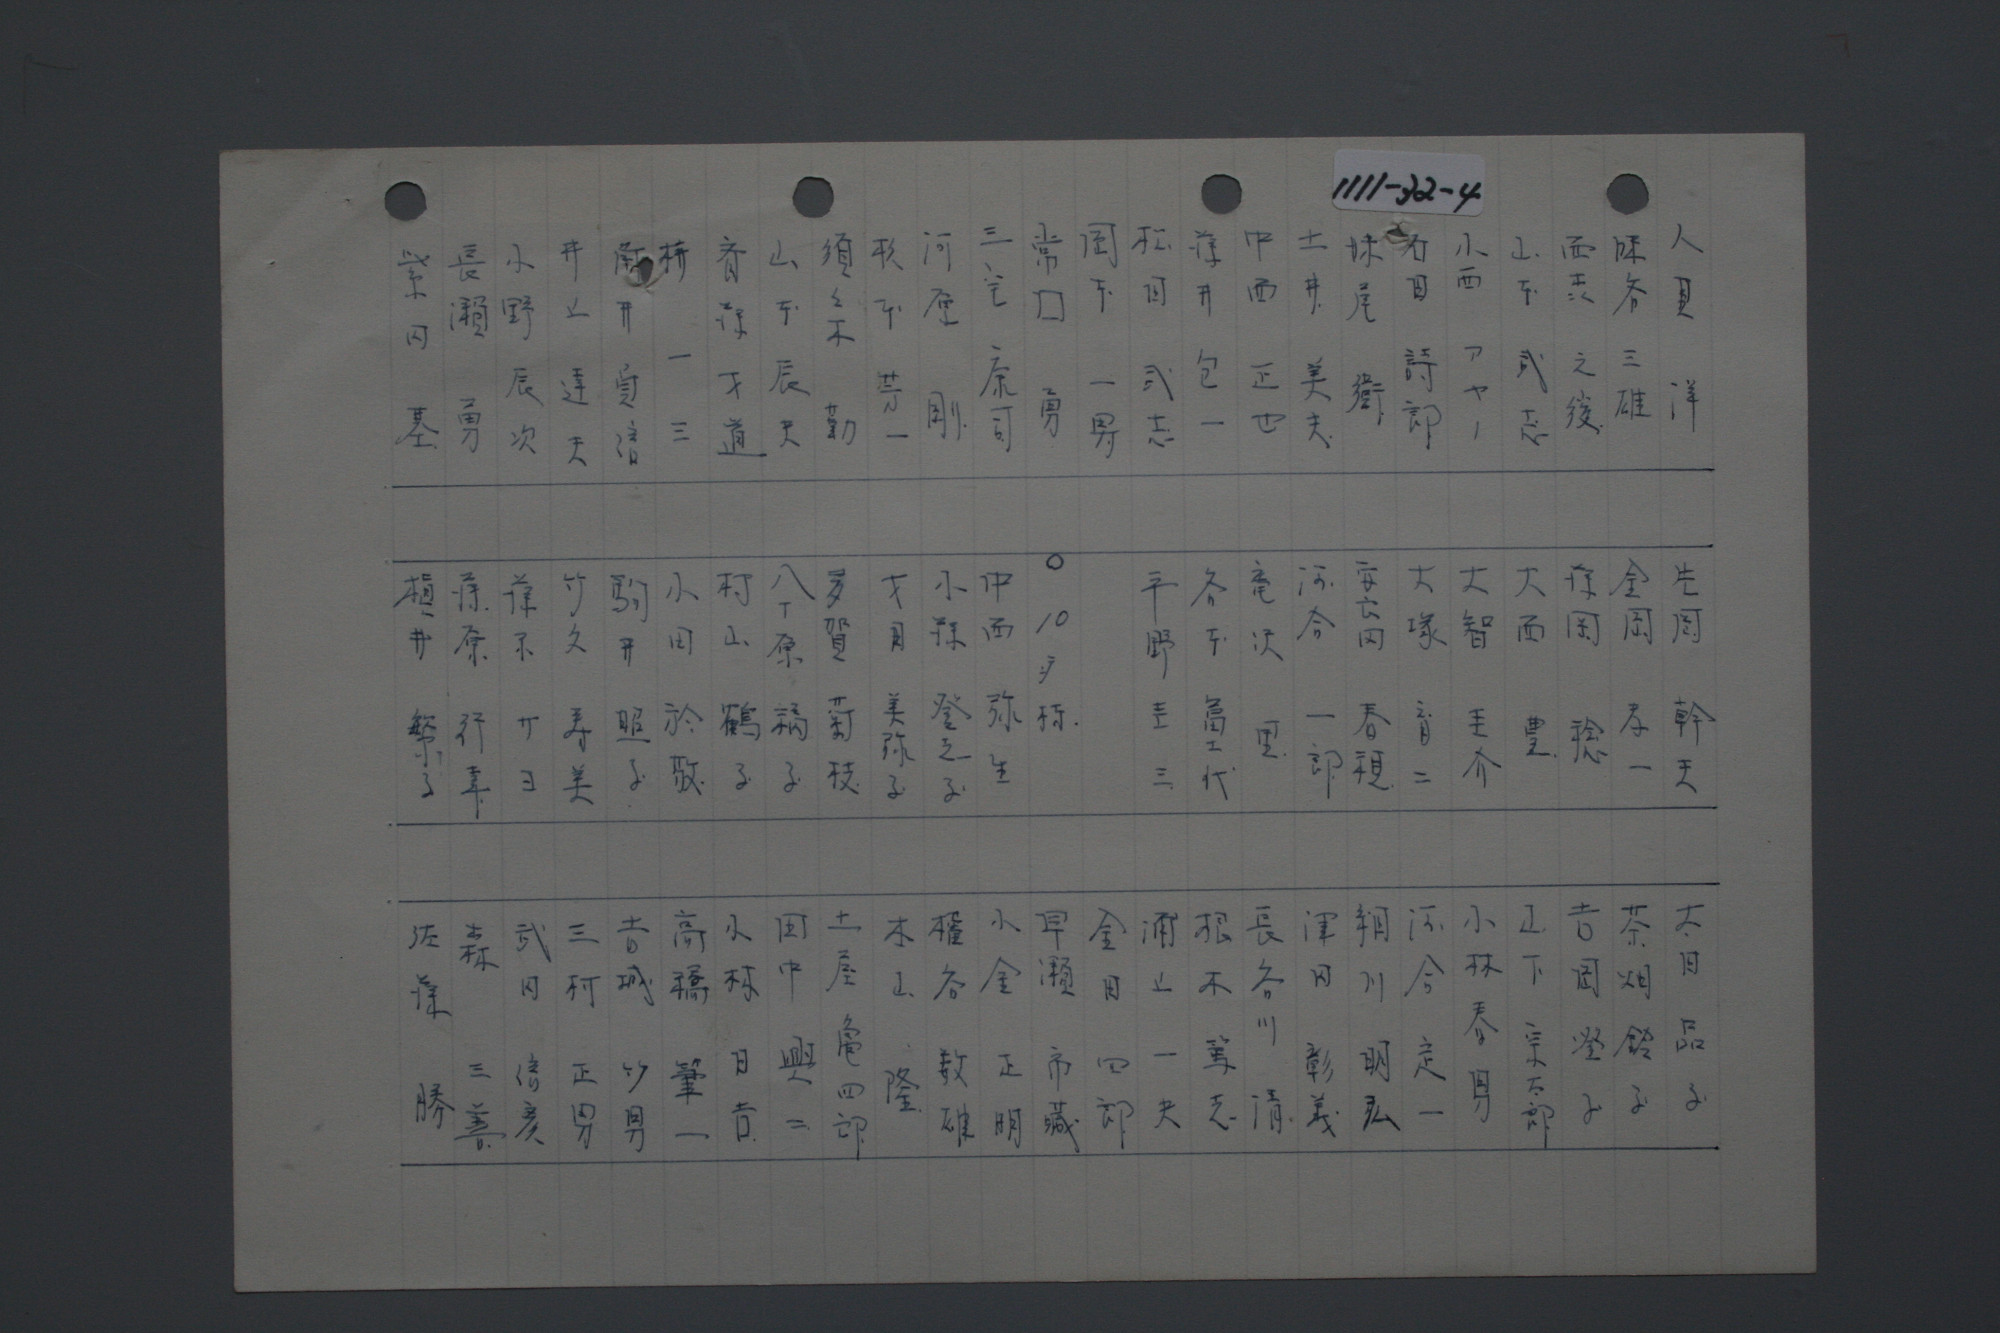 1111-32-4
人見 洋
三雄
之後
山本 武志
小西 アヤノ
石田 詩郎
妹尾 衛
土井 美夫
中西 正也
藤井 包一
松田 武志
岡本 一男
常口 勇
三宅 康司
河原 剛
杉本 芳一
須々木 勤
山本 辰夫
斉藤 才道
一三
井 貞信
井上 達夫
小野 辰次
長瀬 勇
柴田 基
先岡 幹夫
金岡 孝一
藤岡 稔
大西 豊
大智 圭介
大塚 育二
安富 春視
河合 一郎
谷本 富士代
平野 圭三
○ 10.9 栃
中西 弥生
小藤 登志子
才月 美弥子
多賀 菊枝
村山 鶴子
小田 於敬
駒井 照子
竹久 寿美
藤木 サヨ
藤原 行幸
槙井 繁子
太田 品子
茶畑 鈴子
吉岡 登子
正下 宗太郎
小林 春男
河合 定一
朝川 明弘
津田 彰義
長谷川 清
根木 篤志
浦上 一夫
金田 四郎
早瀬 市蔵
小金 正明
横谷 数雄
本山 隆
土屋 亀四郎
田中 興二
小林 日吉
高橋 肇一
吉城 竹男
三村 正男
武田 信彦
森 三善
佐藤 勝